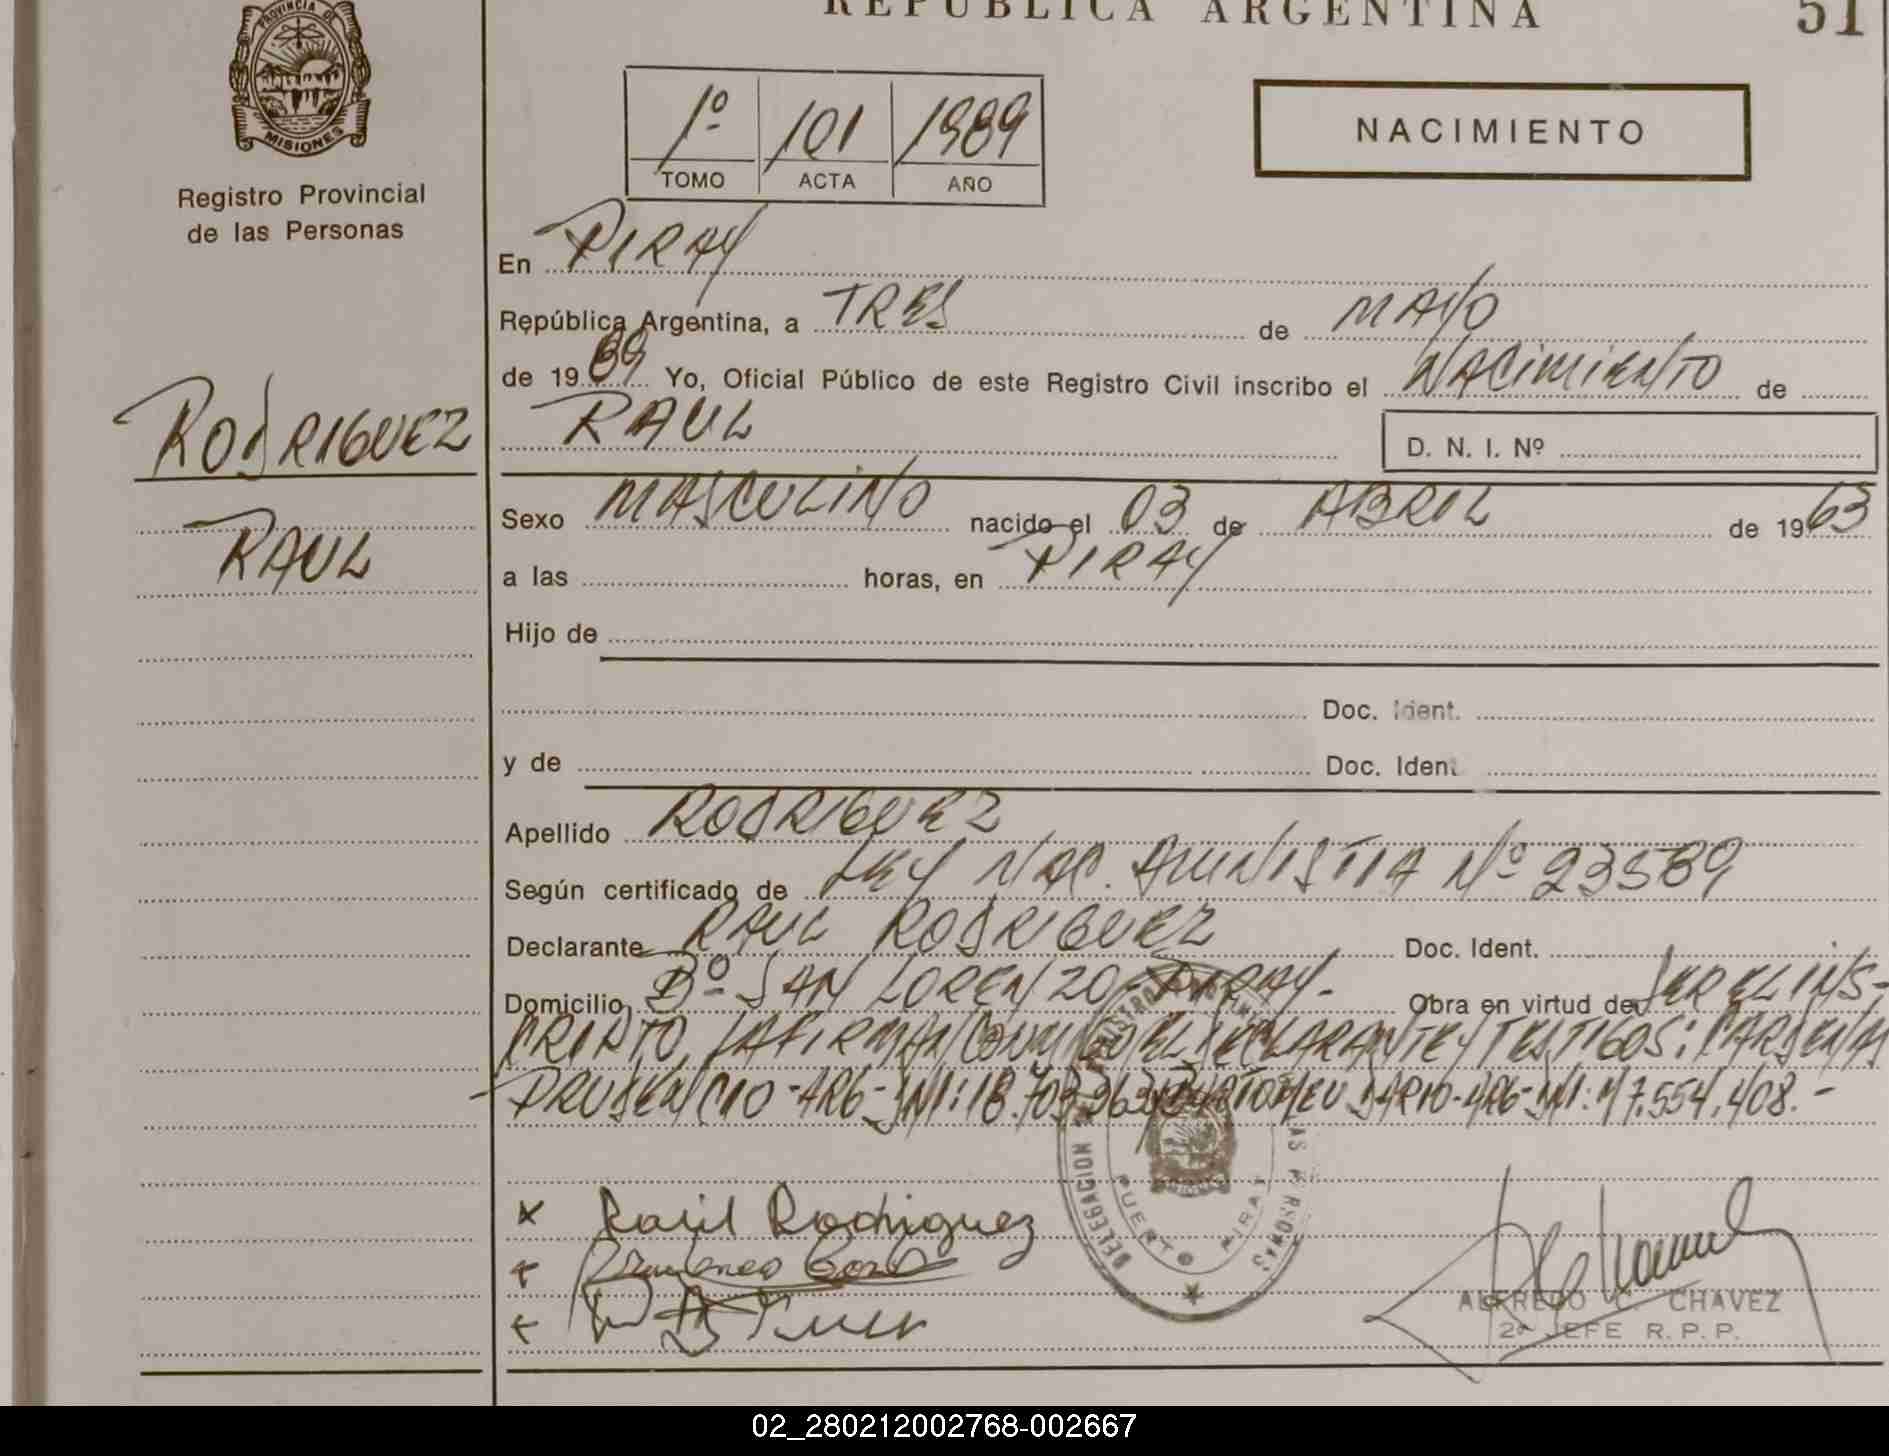 REPUBLICA ARGENTINA
51
PROVINCIA DE
MISIONES
Registro Provincial
de las Personas
1º 101 1989
TOMO ACTA AÑO
NACIMIENTO
En PIRAY
República Argentina, a TRES de MAYO
de 19 89 Yo, Oficial Público de este Registro Civil inscribo el NACIMIENTO de
RAUL
D. N. I. Nº
RODRIGUEZ
RAUL
Sexo MASCULINO nacido el 03 de ABRIL de 19 63
a las horas, en PIRAY
Hijo de
Doc. Ident.
y de Doc. Ident.
Apellido RODRIGUEZ
Según certificado de LEY NAC. AMNISTIA Nº 23589
Declarante RAUL RODRIGUEZ Doc. Ident.
Domicilio Bº SAN LORENZO - PIRAY - Obra en virtud de SER EL INS-
CRIPTO, FIRMAN CONMIGO EL DECLARANTE Y TESTIGOS:
PRUDENCIO - ARG - DNI: 18.703.963 DARIO - ARG - DNI: 17.554.408. -
x Raúl Rodriguez
DELEGACION
PUERTO PIRAY
LAS PERSONAS
MISIONES
ALFREDO C. CHAVEZ
2º JEFE R. P. P.
02_280212002768-002667